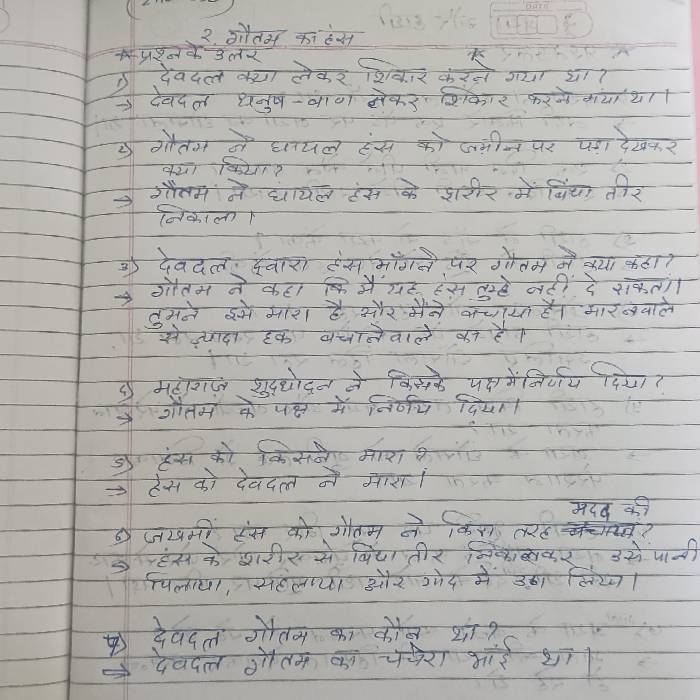 २. गौतम का हंस
* प्रश्न के उत्तर
१) देवदत्त क्या लेकर शिकार करने गया था?
→ देवदत्त धनुष-बाण लेकर शिकार करने गया था।
२) गौतम ने घायल हंस को जमीन पर पडा देखकर
क्या किया?
→ गौतम ने घायल हंस के शरीर में बिंधा तीर
निकाला।
३) देवदत्त द्वारा हंस माँगने पर गौतम ने क्या कहा?
→ गौतम ने कहा कि मैं यह हंस तुम्हे नहीं दे सकता।
तुमने इसे मारा है और मैंने बचाया है। मारनेवाले
से ज्यादा हक बचानेवाले का है।
४) महाराज शुद्धोदन ने किसके पक्ष में निर्णय दिया?
→ गौतम के पक्ष में निर्णय दिया।
५) हंस को किसने मारा?
→ हंस को देवदत्त ने मारा।
मदद की
६) जखमी हंस को गौतम ने किस तरह ?
→ हंस के शरीर से बिंधा तीर निकालकर उसे पानी
पिलाया, सहलाया और गोद में उठा लिया।
७) देवदत्त गौतम का कौन था?
→ देवदत्त गौतम का चचेरा भाई था।